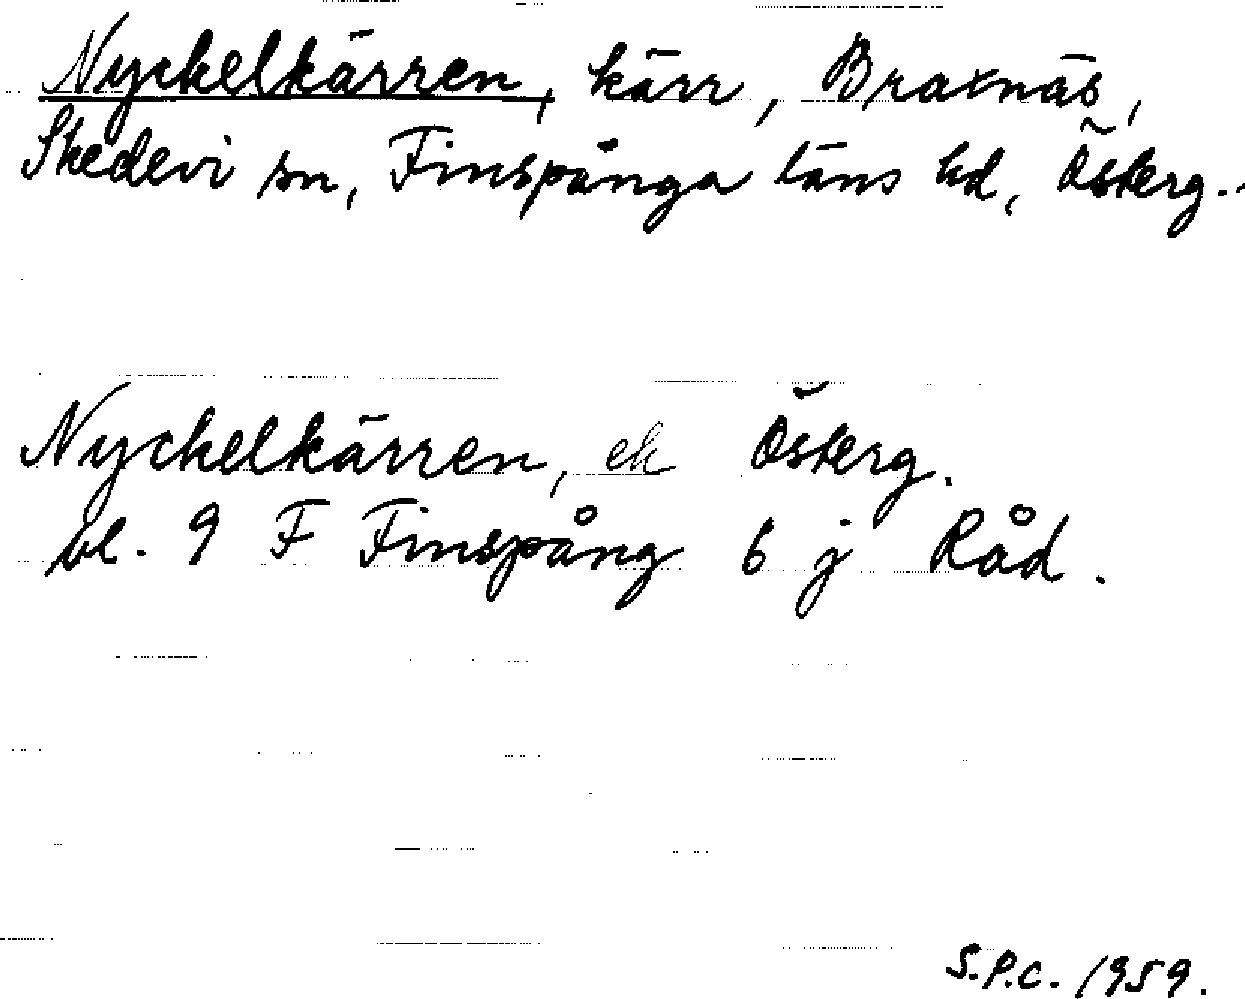 Nyckelkärren, kärr, Braxnäs,
Skedevi sn, Finspånga läns hd, Österg.
Nyckelkärren, ek Österg.
bl. 9 F Finspång 6 j Råd.
S.P.C. 1959.